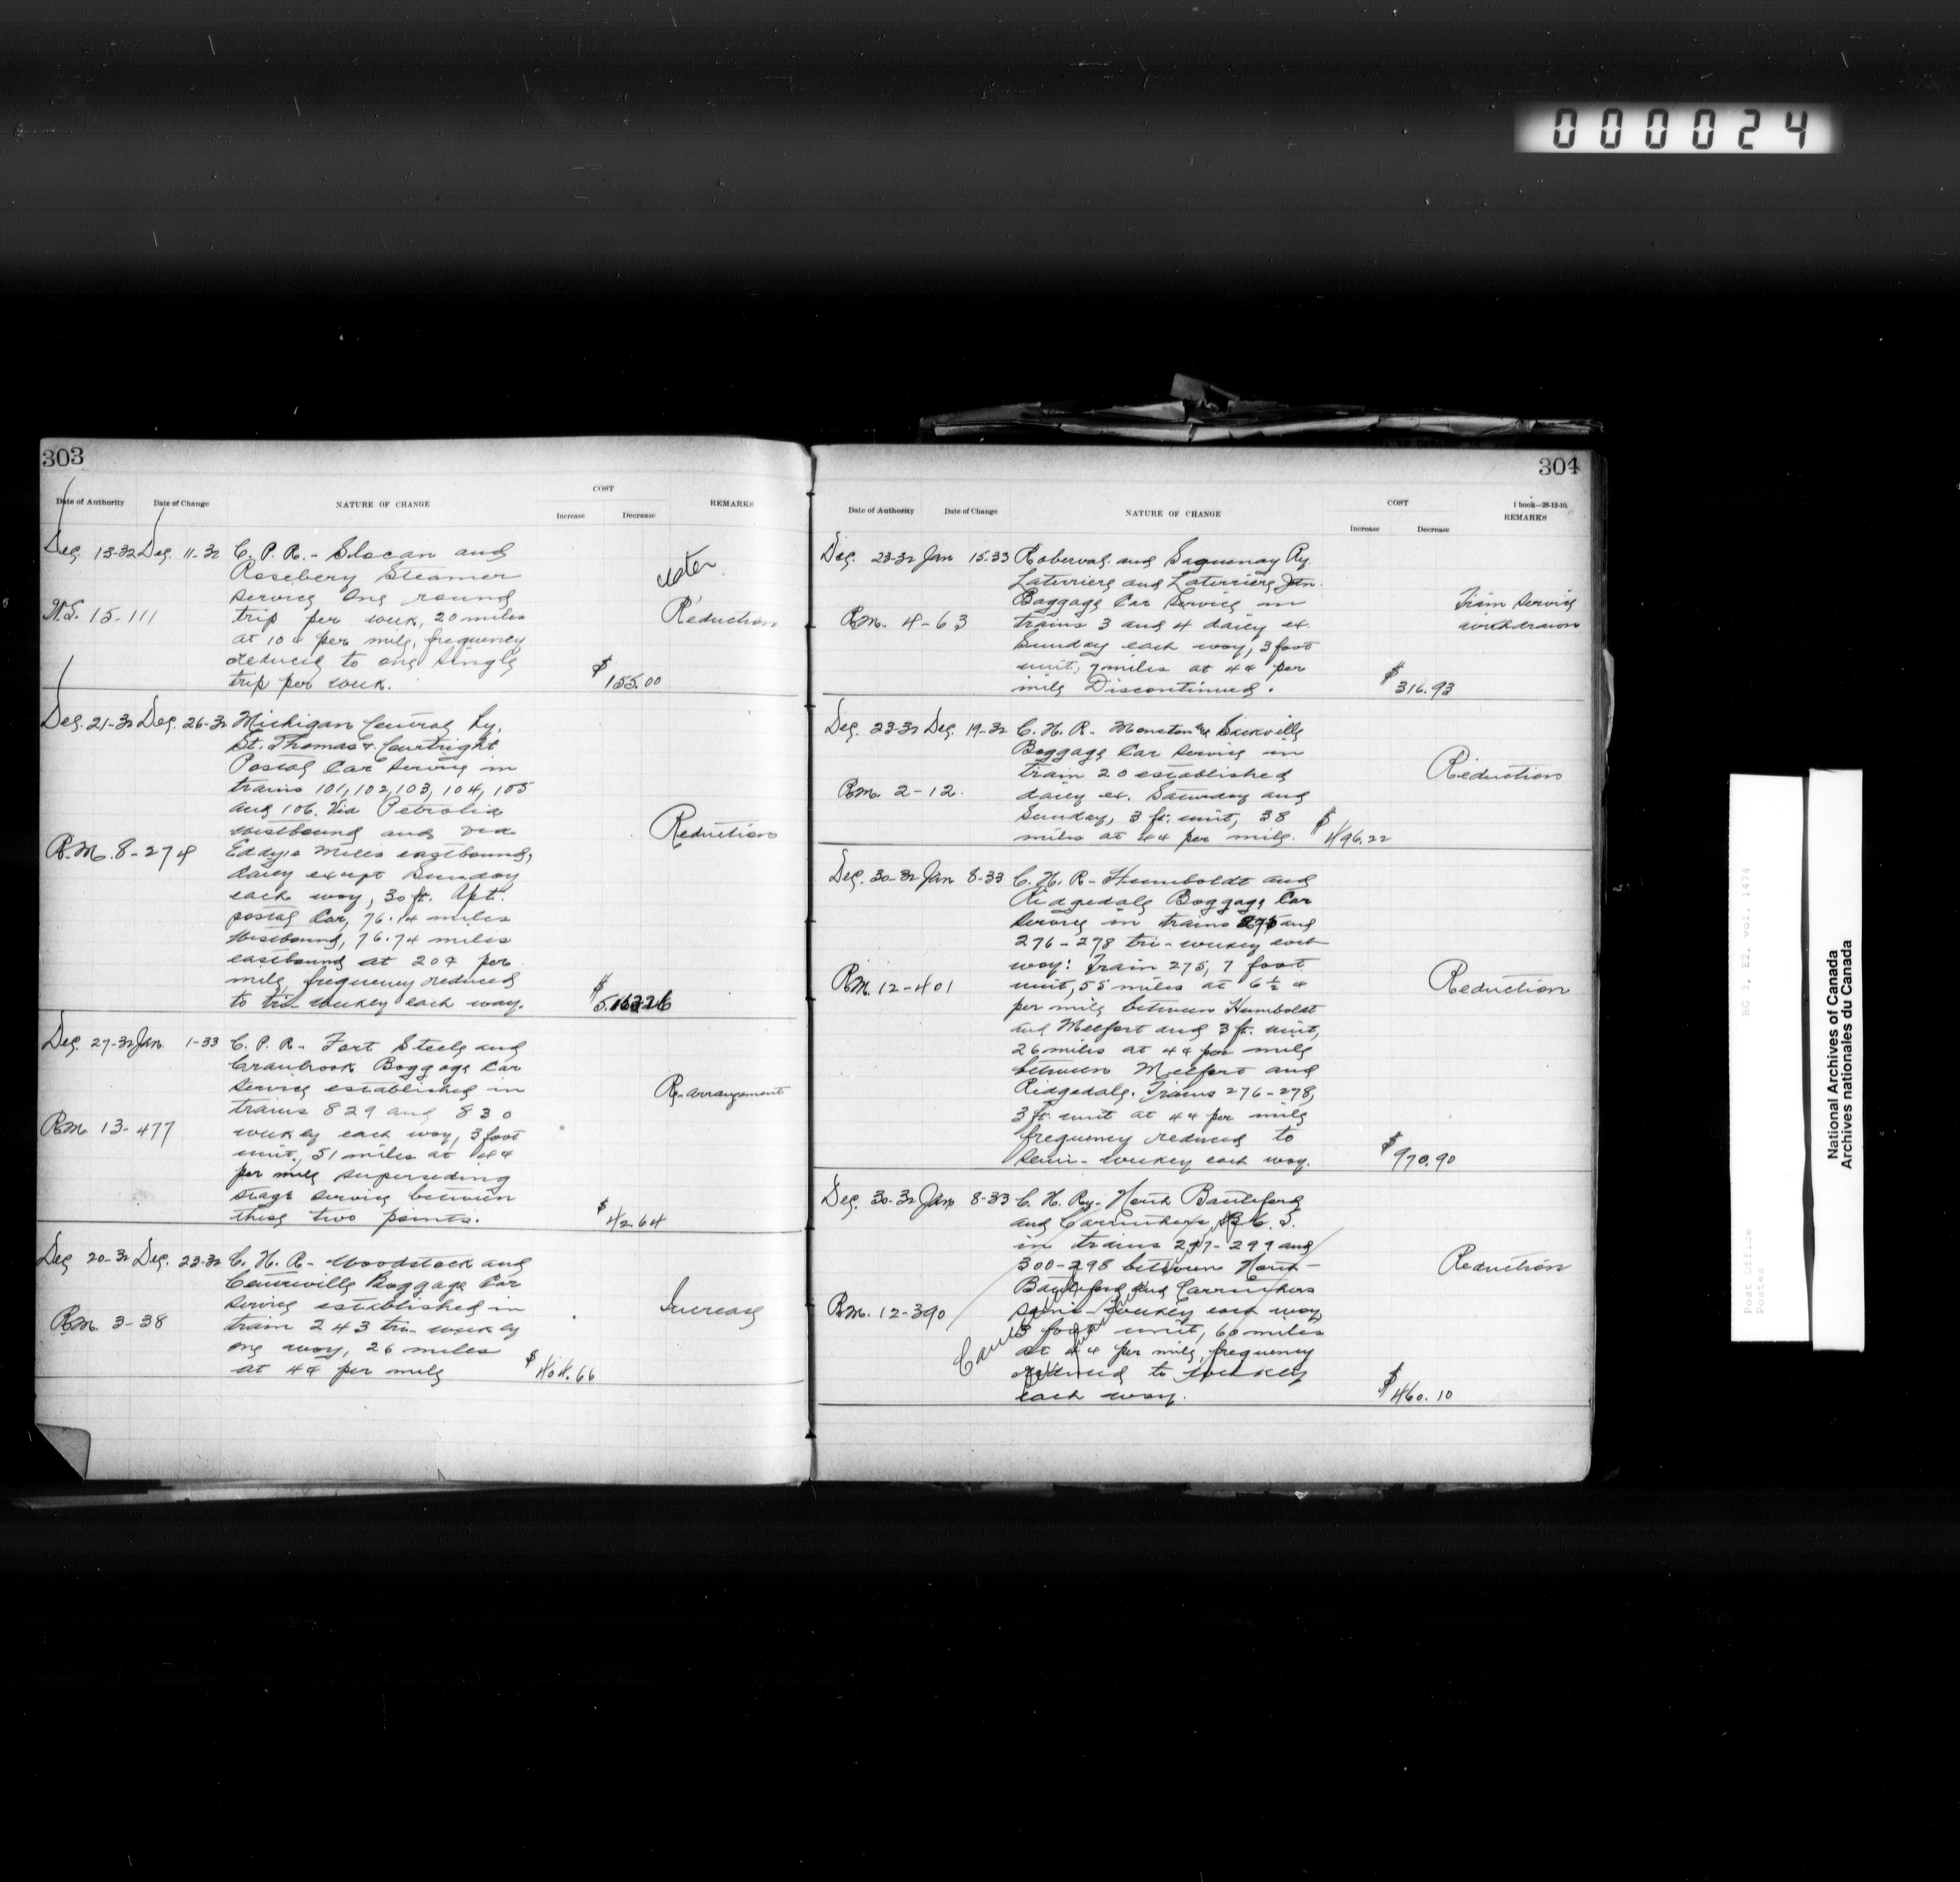 000024
303
Date of Authority Date of Change NATURE OF CHANGE COST Increase Decrease REMARKS
Dec. 13-32 Dec. 11-32 C. P. R. - Slocan and
Rosebery Steamer
service one round
W.S. 15-111 trip per week, 20 miles Reduction
at 10¢ per mile, frequency
reduced to one single
trip per week. $155.00
Dec. 21-32 Dec. 26-32 Michigan Central Ry.
St. Thomas & Courtright
Postal Car Service in
trains 101, 102, 103, 104, 105
and 106. Via Petrolia
westbound and via Reduction
R.M. 8-274 Eddys Mills eastbound,
daily except Sunday
each way, 30 ft. Apt.
postal Car, 76.14 miles
westbound, 76.74 miles
eastbound at 20¢ per
mile, frequency reduced
to tri-weekly each way. $
Dec. 27-32 Jan 1-33 C. P. R. - Fort Steele and
Cranbrook Baggage Car
service established in Re-arrangement
trains 829 and 830
R.M. 13-477 weekly each way, 3 foot
unit, 51 miles at 4¢
per mile superseding
stage service between
these two points. $42.64
Dec 20-32 Dec. 23-32 C. N. R. - Woodstock and
Centreville Baggage Car
service established in Increase
R.M. 3-38 train 243 tri-weekly
one way, 26 miles
at 4¢ per mile $404.66
304
1 book—28-12-10.
Date of Authority Date of Change NATURE OF CHANGE COST Increase Decrease REMARKS
Dec. 23-32 Jan 15-33 Roberval and Saguenay Ry.
Laterriere and Laterriere Jun.
Baggage Car Service in Train service
R.M. 4-63 trains 3 and 4 daily ex. withdrawn
Sunday each way, 3 foot
unit, 7 miles at 4¢ per
mile Discontinued. $316.93
Dec. 23-32 Dec. 19-32 C. N. R. - Moncton & Sackville
Baggage Car Service in
train 20 established Reduction
R.M. 2-12. daily ex. Saturday and
Sunday, 3 ft. unit, 38
miles at 4¢ per mile. $496.22
Dec. 30-32 Jan 8-33 C. N. R - Humboldt and
Ridgedale Baggage Car
Service in trains 275 and
276-278 tri-weekly each
way: Train 275, 7 foot
R.M. 12-401 unit, 55 miles at 6½ ¢ Reduction
per mile between Humboldt
and Melfort and 3 ft. unit,
26 miles at 4¢ per mile
between Melfort and
Ridgedale. Trains 276-278,
3 ft. unit at 4¢ per mile
frequency reduced to
semi-weekly each way. $970.90
Dec. 30-32 Jan 8-33 C. N. Ry. - North Battleford
and Carruthers B. C. S.
in trains 297-299 and
300-298 between North- Reduction
Battleford and Carruthers
R.M. 12-390 semi-weekly each way
3 foot unit, 60 miles
at 4¢ per mile, frequency
reduced to weekly
each way. $460.10
RG 3, E2, vol. 1474
Post Office
Postes
National Archives of Canada
Archives nationales du Canada